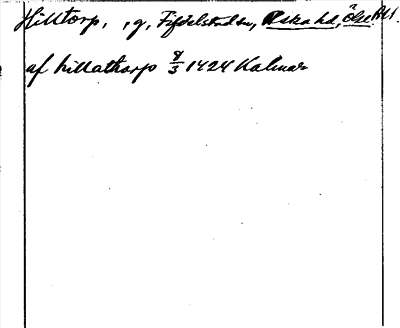 Hilltorp, , g, Fifdelstad sn, Aska hd, Ög. All.
af hillathorp 8/3 1424 Kalmar